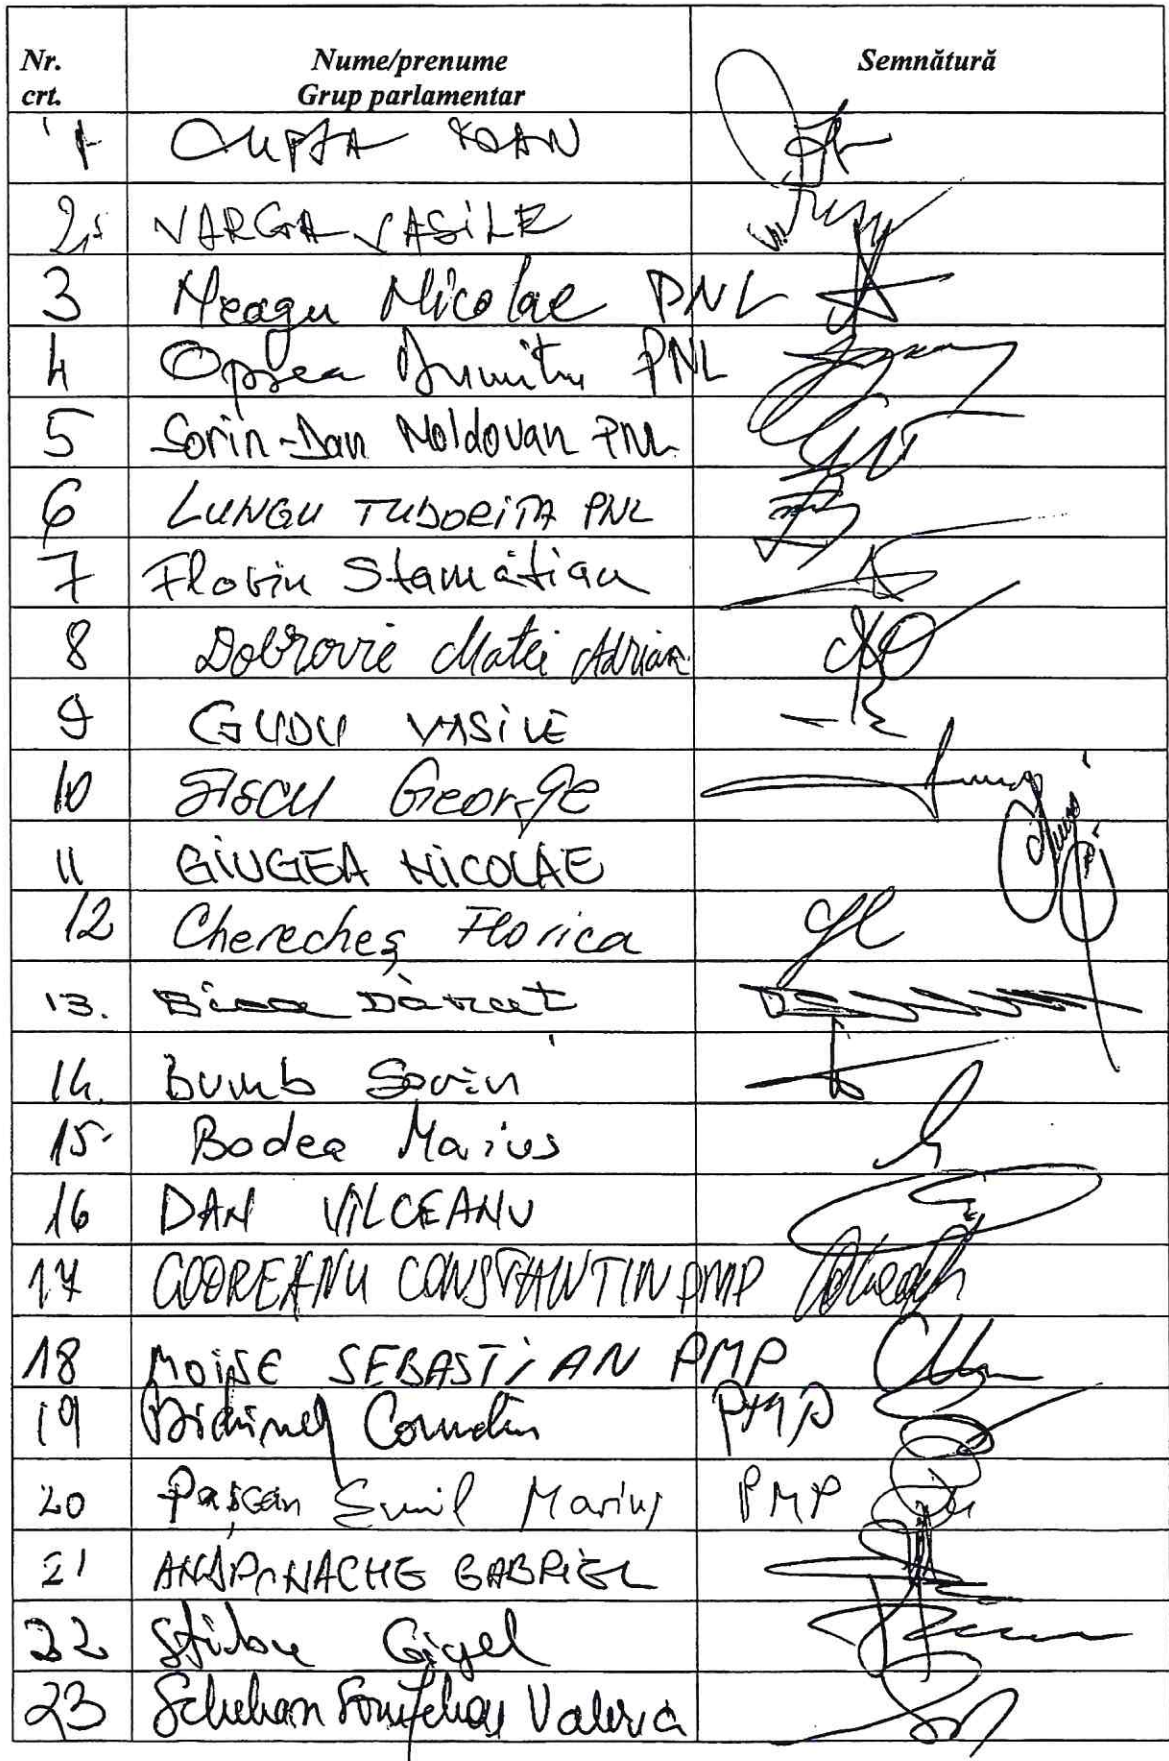 Nr. crt. Nume/prenume Grup parlamentar Semnătură
1 CUPȘA IOAN
2. VARGA VASILE
3 Neagu Nicolae PNL
4 Oprea Dumitru PNL
5 Sorin-Dan Moldovan PNL
6 LUNGU TUDORIȚA PNL
7 Florin Stamatian
8 Dobrovie Matei Adrian
9 GUDU VASILE
10 ȘIȘCU George
11 GIUGEA NICOLAE
12 Cherecheș Florica
13.
14. Bumb Sorin
15. Bodea Marius
16 DAN VILCEANU
17 CODREANU CONSTANTIN PMP
18 MOISE SEBASTIAN PMP
19 Corneliu PMP
20 Pașcan Emil Marius PMP
21 ANDRONACHE GABRIEL
22 Știrbu Gigel
23 Schelean Valeria